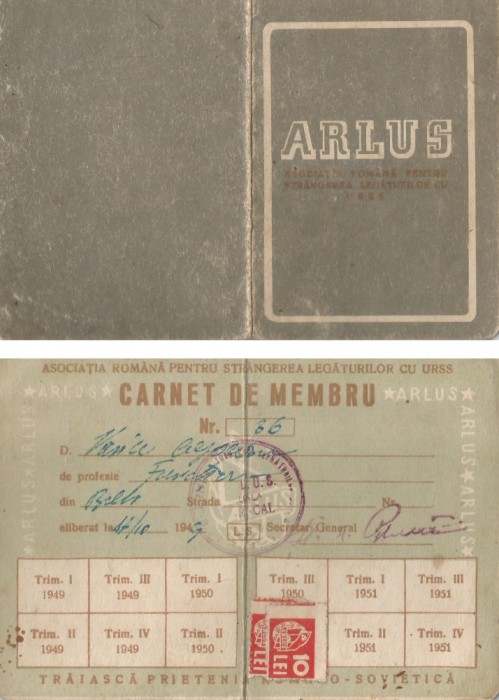 ARLUS
ASOCIAȚIA ROMÂNĂ PENTRU
STRÂNGEREA LEGĂTURILOR CU
URSS
ASOCIAȚIA ROMÂNĂ PENTRU STRÂNGEREA LEGĂTURILOR CU URSS
★ARLUS★ CARNET DE MEMBRU ★ARLUS★
Nr. 66
D. Vasile
de profesie
din Strada Nr.
eliberat la 194 L.S. Secretar General
L.U.S.
LOCAL
ARLUS
Trim. I 1949
Trim. III 1949
Trim. I 1950
Trim. III 1950
Trim. I 1951
Trim. III 1951
Trim. II 1949
Trim. IV 1949
Trim. II 1950
10 LEI
LEI
Trim. II 1951
Trim. IV 1951
TRĂIASCĂ PRIETENIA ROMÂNO-SOVIETICĂ